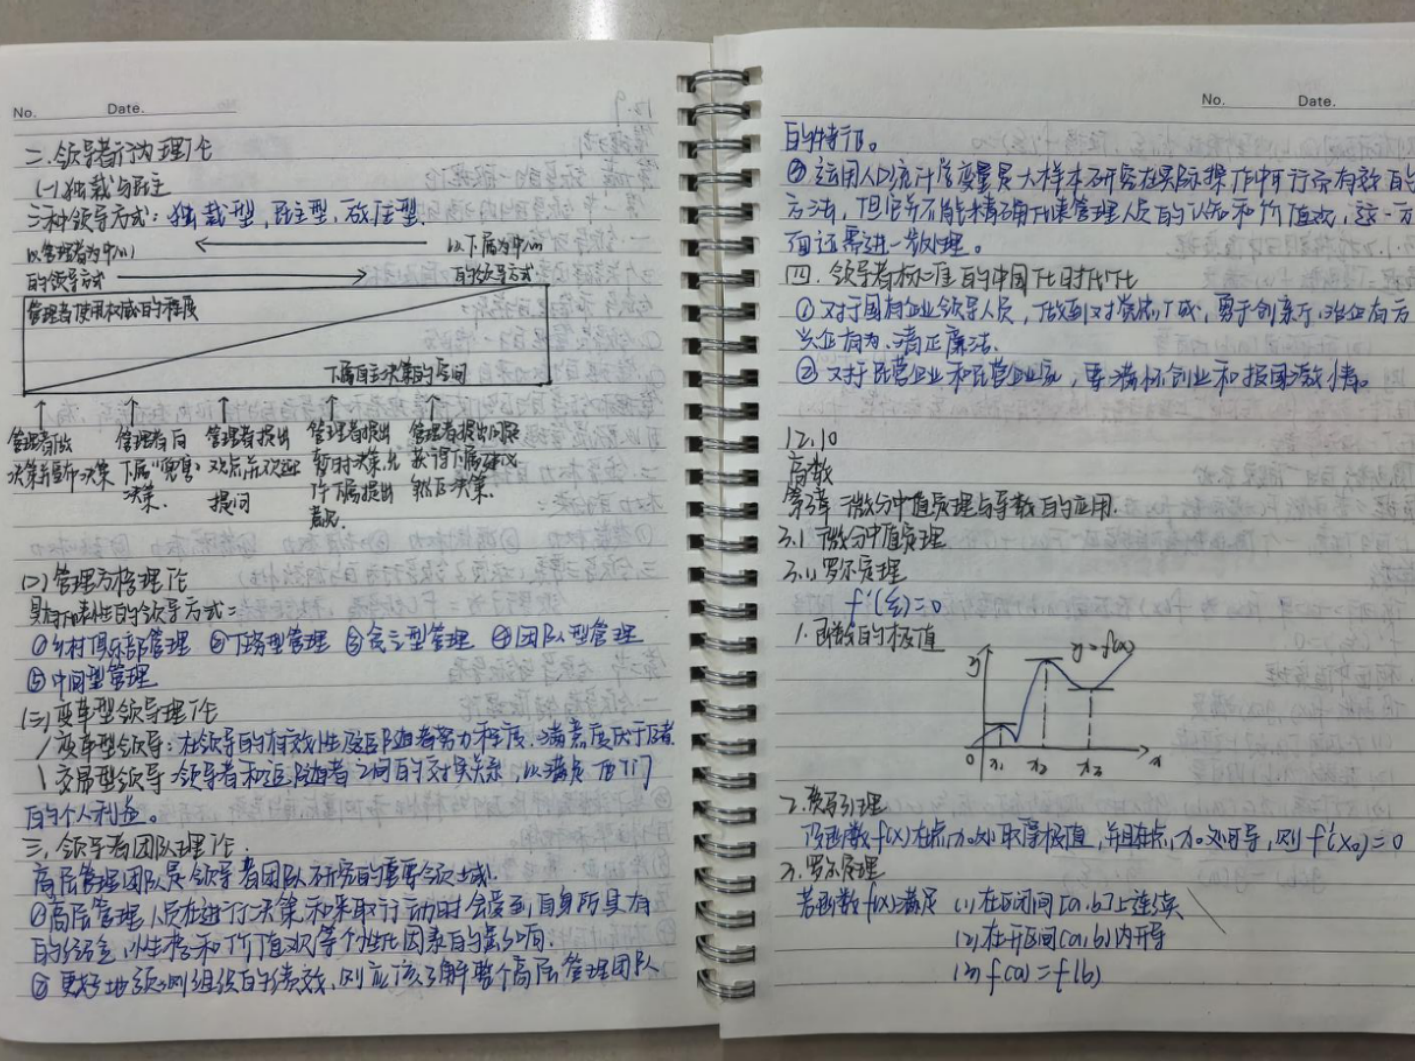 No. Date.
二.领导者行为理论
(一)独裁与民主
三种领导方式：独裁型，民主型，放任型.
以管理者为中心 以下属为中心
的领导方式 的领导方式
管理者使用权威的程度
下属自主决策的空间
管理者做 管理者向 管理者提出 管理者提出 管理者提出问题
决策并宣布决策 下属"兜售" 观点并欢迎 暂时决策,允 获得下属建议
决策. 提问 许下属提出 然后决策.
意见.
(二)管理方格理论
具有代表性的领导方式：
①乡村俱乐部管理 ②任务型管理 ③贫乏型管理 ④团队型管理
⑤中间型管理
(三)变革型领导理论
变革型领导：在领导的有效性及追随者努力程度.满意度优于后者.
交易型领导：领导者和追随者之间的交换关系，以满足他们
的个人利益。
三.领导者团队理论.
高层管理团队是领导者团队研究的重要领域.
①高层管理人员在进行决策和采取行动时会受到自身所具有
的经验,性格和价值观等个性化因素的影响.
②更好地预测组织的绩效,则应该了解整个高层管理团队
No. Date.
的特征。
③运用人口统计学变量是大样本研究在实际操作中可行而有效的
方法，但它并不能精确代表管理人员的认知和价值观，这一方
面还需进一步处理。
四.领导者标准的中国化时代化
①对于国有企业领导人员，做到对党忠诚，勇于创新，治企有方
兴企有为、清正廉洁.
②对于民营企业和民营企业家，要满怀创业和报国激情。
12.10
高数
第3章 微分中值定理与导数的应用.
3.1 微分中值定理
3.1.1 罗尔定理
f'(ξ)=0
1.函数的极值
y y=f(x)
0 x₁ x₂ x₃ x
2.费马引理
设函数f(x)在点x₀处取得极值,并且在点x₀处可导,则f'(x₀)=0
3.罗尔定理
若函数f(x)满足 (1)在闭区间[a,b]上连续
(2)在开区间(a,b)内可导
(3)f(a)=f(b)